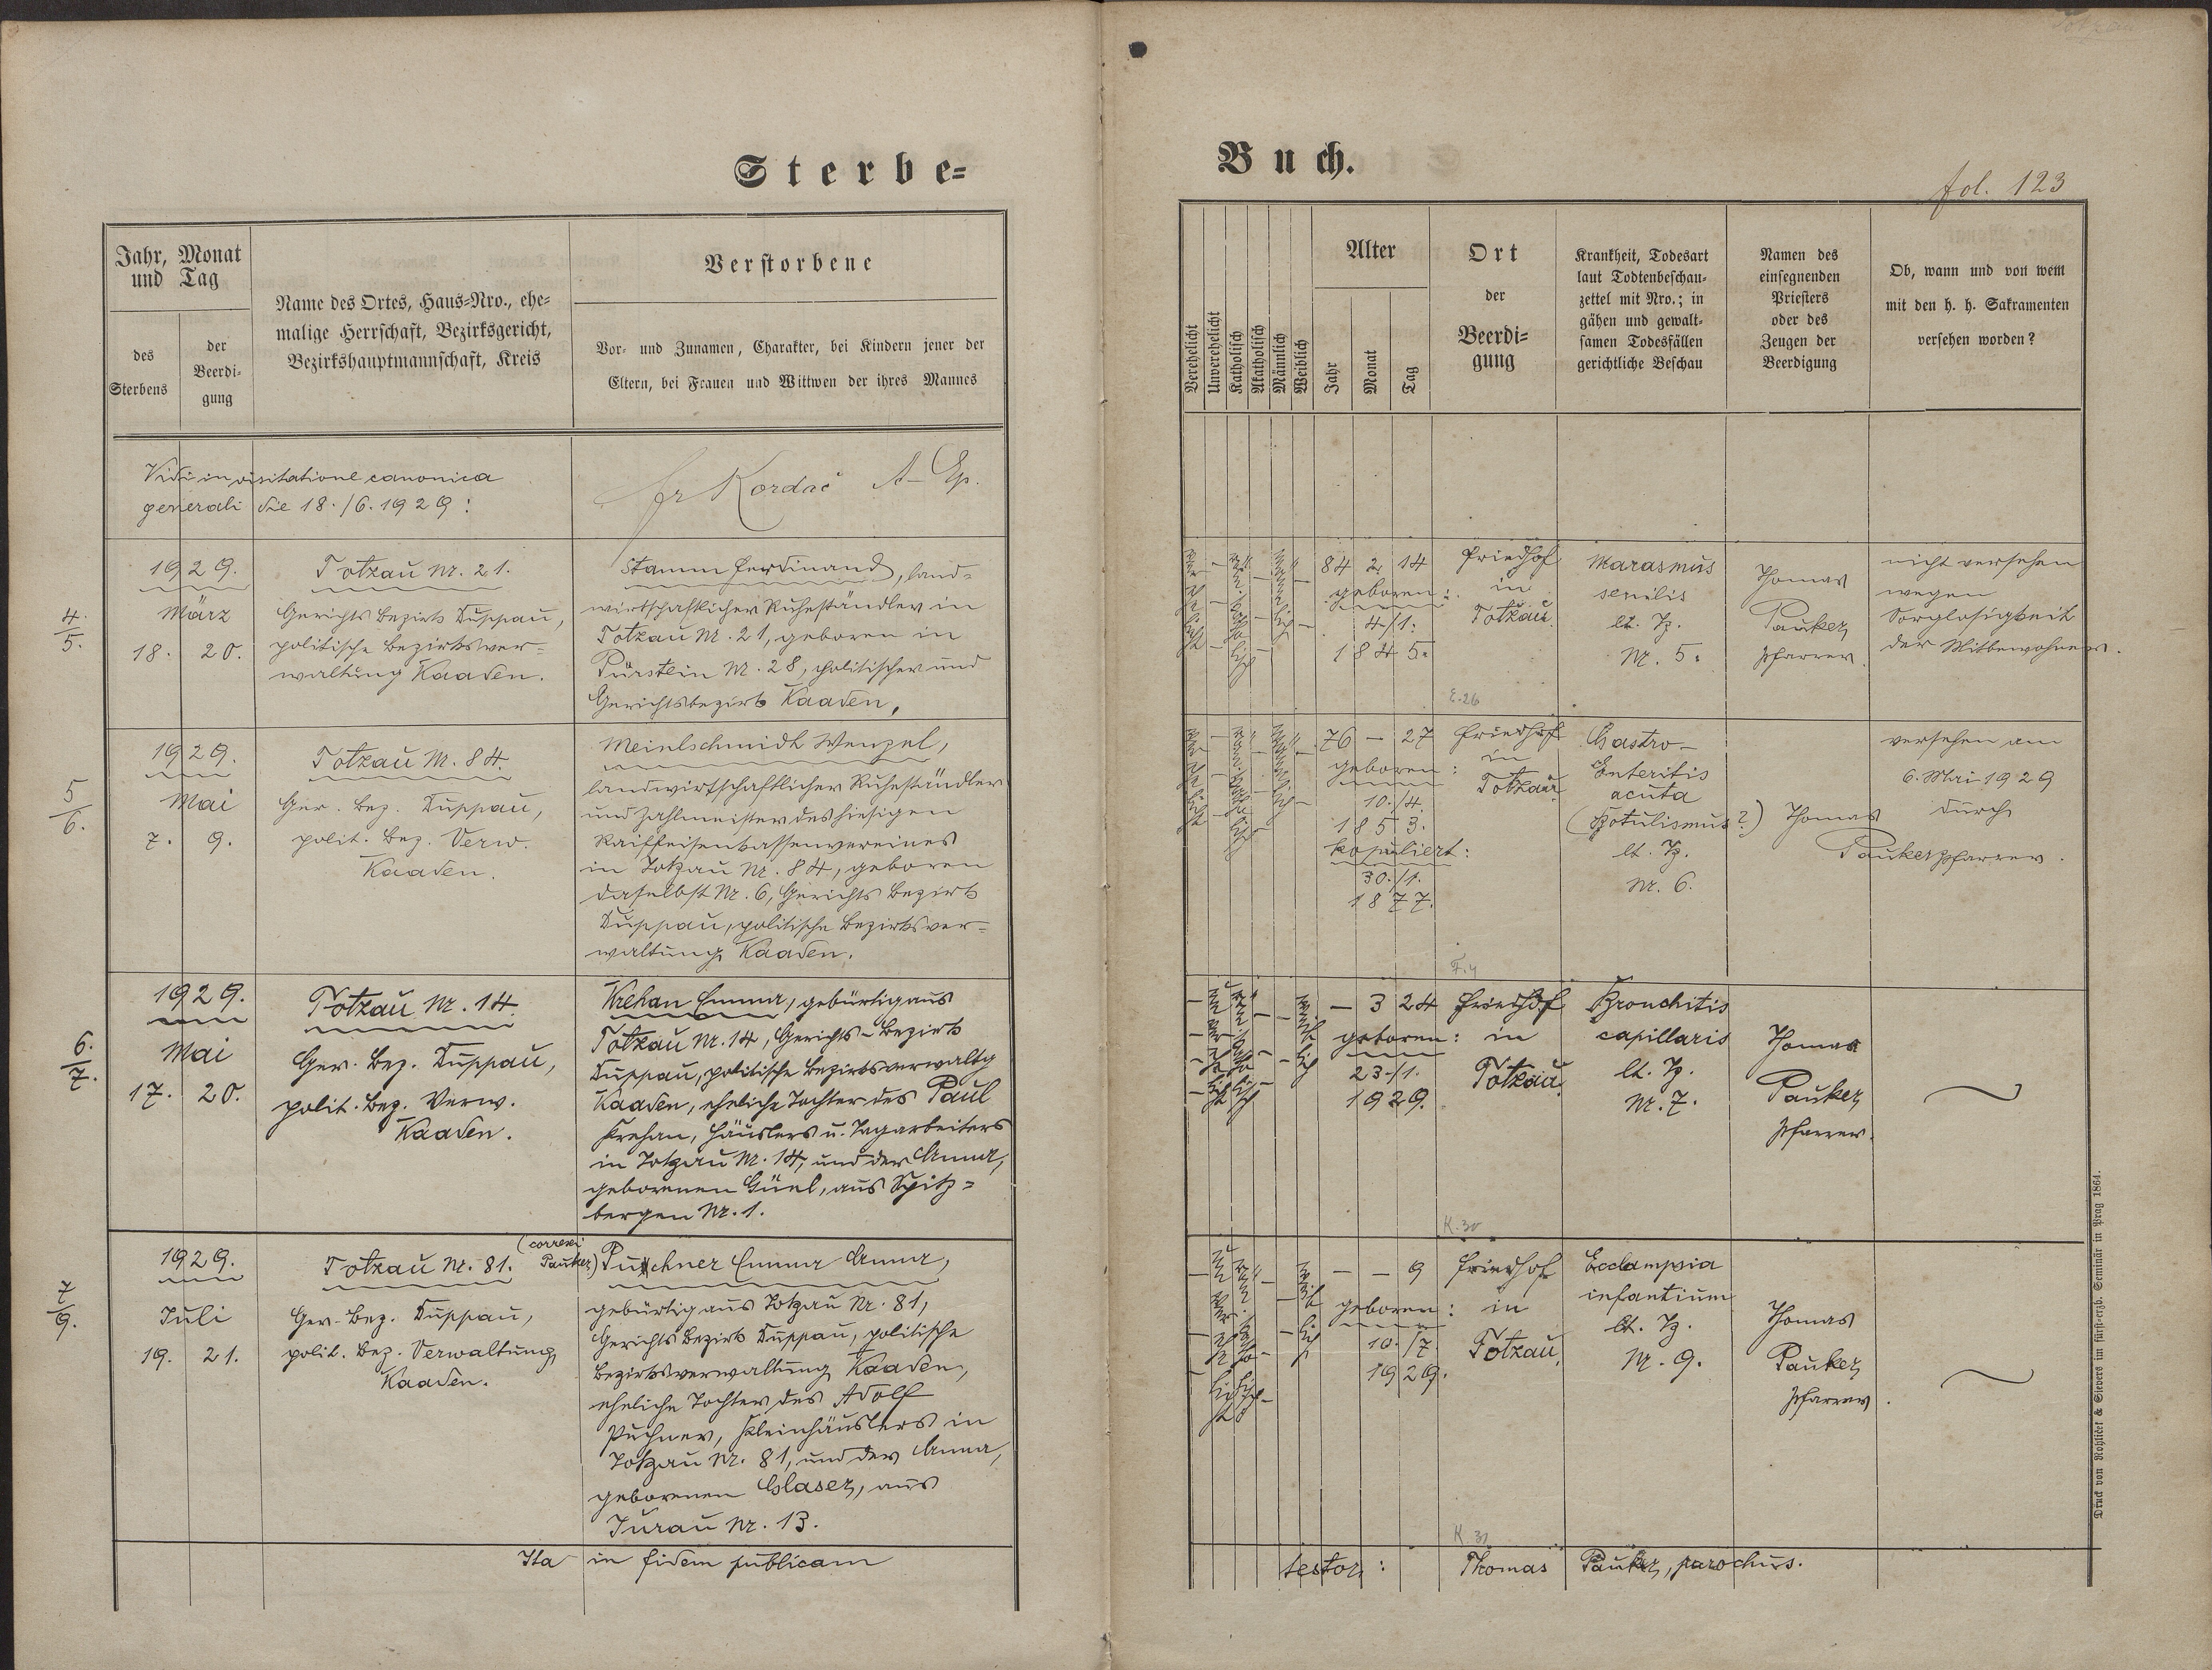 Sterbe=
Buch.
fol. 123
Jahr, Monat
und Tag
des
Sterbens
der
Beerdi-
gung
Name des Ortes, Haus=Nro., ehe-
malige Herrschaft, Bezirksgericht,
Bezirkshauptmannschaft, Kreis
Verstorbene
Vor- und Zunamen, Charakter, bei Kindern jener der
Eltern, bei Frauen und Wittwen der ihres Mannes
Verehelicht
Unverehelicht
Katholisch
Akatholisch
Männlich
Weiblich
Alter
Jahr
Monat
Tag
Ort
der
Beerdi=
gung
Krankheit, Todesart
laut Todtenbeschau-
zettel mit Nro.; in
gähen und gewalt-
samen Todesfällen
gerichtliche Beschau
Namen des
einsegnenden
Priesters
oder des
Zeugen der
Beerdigung
Ob, wann und von wem
mit den h. h. Sakramenten
versehen worden?
Vidi in visitatione canonica
generali die 18./6.1929:
Fr Kordač A-Ep.
4.
5.
1929.
März
18. 20.
Totzau Nr. 21.
Gerichts Bezirk Duppau,
politische Bezirksver-
waltung Kaaden.
Stamm Ferdinand, land-
wirtschaftlicher Ruheständler in
Totzau Nr. 21, geboren in
Pürstein Nr. 28, politischer und
Gerichtsbezirk Kaaden.
verehelicht
katholisch
männlich
84 2 14
geboren:
4/1.
1845.
Friedhof
in
Totzau.
Marasmus
senilis
lt. Tz.
Nr. 5.
Thomas
Pauker,
Pfarrer.
nicht versehen
wegen
Sorglosigkeit
der Mitbewohner.
E. 26
5
6.
1929.
Mai
7. 9.
Totzau Nr. 84.
Ger. Bez. Duppau,
polit. Bez. Verw.
Kaaden.
Meinlschmidt Wenzel,
landwirtschaftlicher Ruheständler
und Zahlmeister des hiesigen
Raiffeisenkassenvereines
in Totzau Nr. 84, geboren
daselbst Nr. 6, Gerichts Bezirk
Duppau, politische Bezirksver-
waltung Kaaden.
verehelicht
katholisch
männlich
76 — 27
geboren:
10./4.
1853.
kopuliert:
30./1.
1877.
Friedhof
in
Totzau.
Gastro-
Enteritis
acuta
(Botulismus?)
lt. Tz.
Nr. 6.
versehen am
6. Mai 1929
durch
Thomas
Pauker Pfarrer.
F. 4
6.
7.
1929.
Mai
17. 20.
Totzau Nr. 14.
Ger. Bez. Duppau,
polit. Bez. Verw.
Kaaden.
Krehan Emma, gebürtig aus
Totzau Nr. 14, Gerichts-Bezirk
Duppau, politische Bezirksverwaltg
Kaaden, eheliche Tochter des Paul
Krehan, Häuslers u. Tagarbeiters
in Totzau Nr. 14, und der Anna,
geborenen Günl, aus Spitz=
bergen Nr. 1.
unverehelicht
katholisch
weiblich
— 3 24
geboren:
23./1.
1929.
Friedhof
in
Totzau.
Bronchitis
capillaris
lt. Tz.
Nr. 7.
Thomas
Pauker,
Pfarrer.
K. 30
7
9.
1929.
Juli
19. 21.
Totzau Nr. 81.
Ger. Bez. Duppau,
polit. Bez. Verwaltung
Kaaden.
(correxi
Pauker)
Puchner Emma Anna,
gebürtig aus Totzau Nr. 81,
Gerichts Bezirk Duppau, politische
Bezirksverwaltung Kaaden,
eheliche Tochter des Adolf
Puchner, Kleinhäuslers in
Totzau Nr. 81, und der Anna,
geborenen Glaser, aus
Turau Nr. 13.
unverehelicht
katholisch
weiblich
— — 9
geboren:
10./7.
1929.
Friedhof
in
Totzau.
Ecclampsia
infantium
lt. Tz.
Nr. 9.
Thomas
Pauker,
Pfarrer.
K. 31
Ita in fidem publicam
testor: Thomas Pauker, parochus.
Druck von Rohliček & Sievers im fürst-erzb. Seminär in Prag 1864.